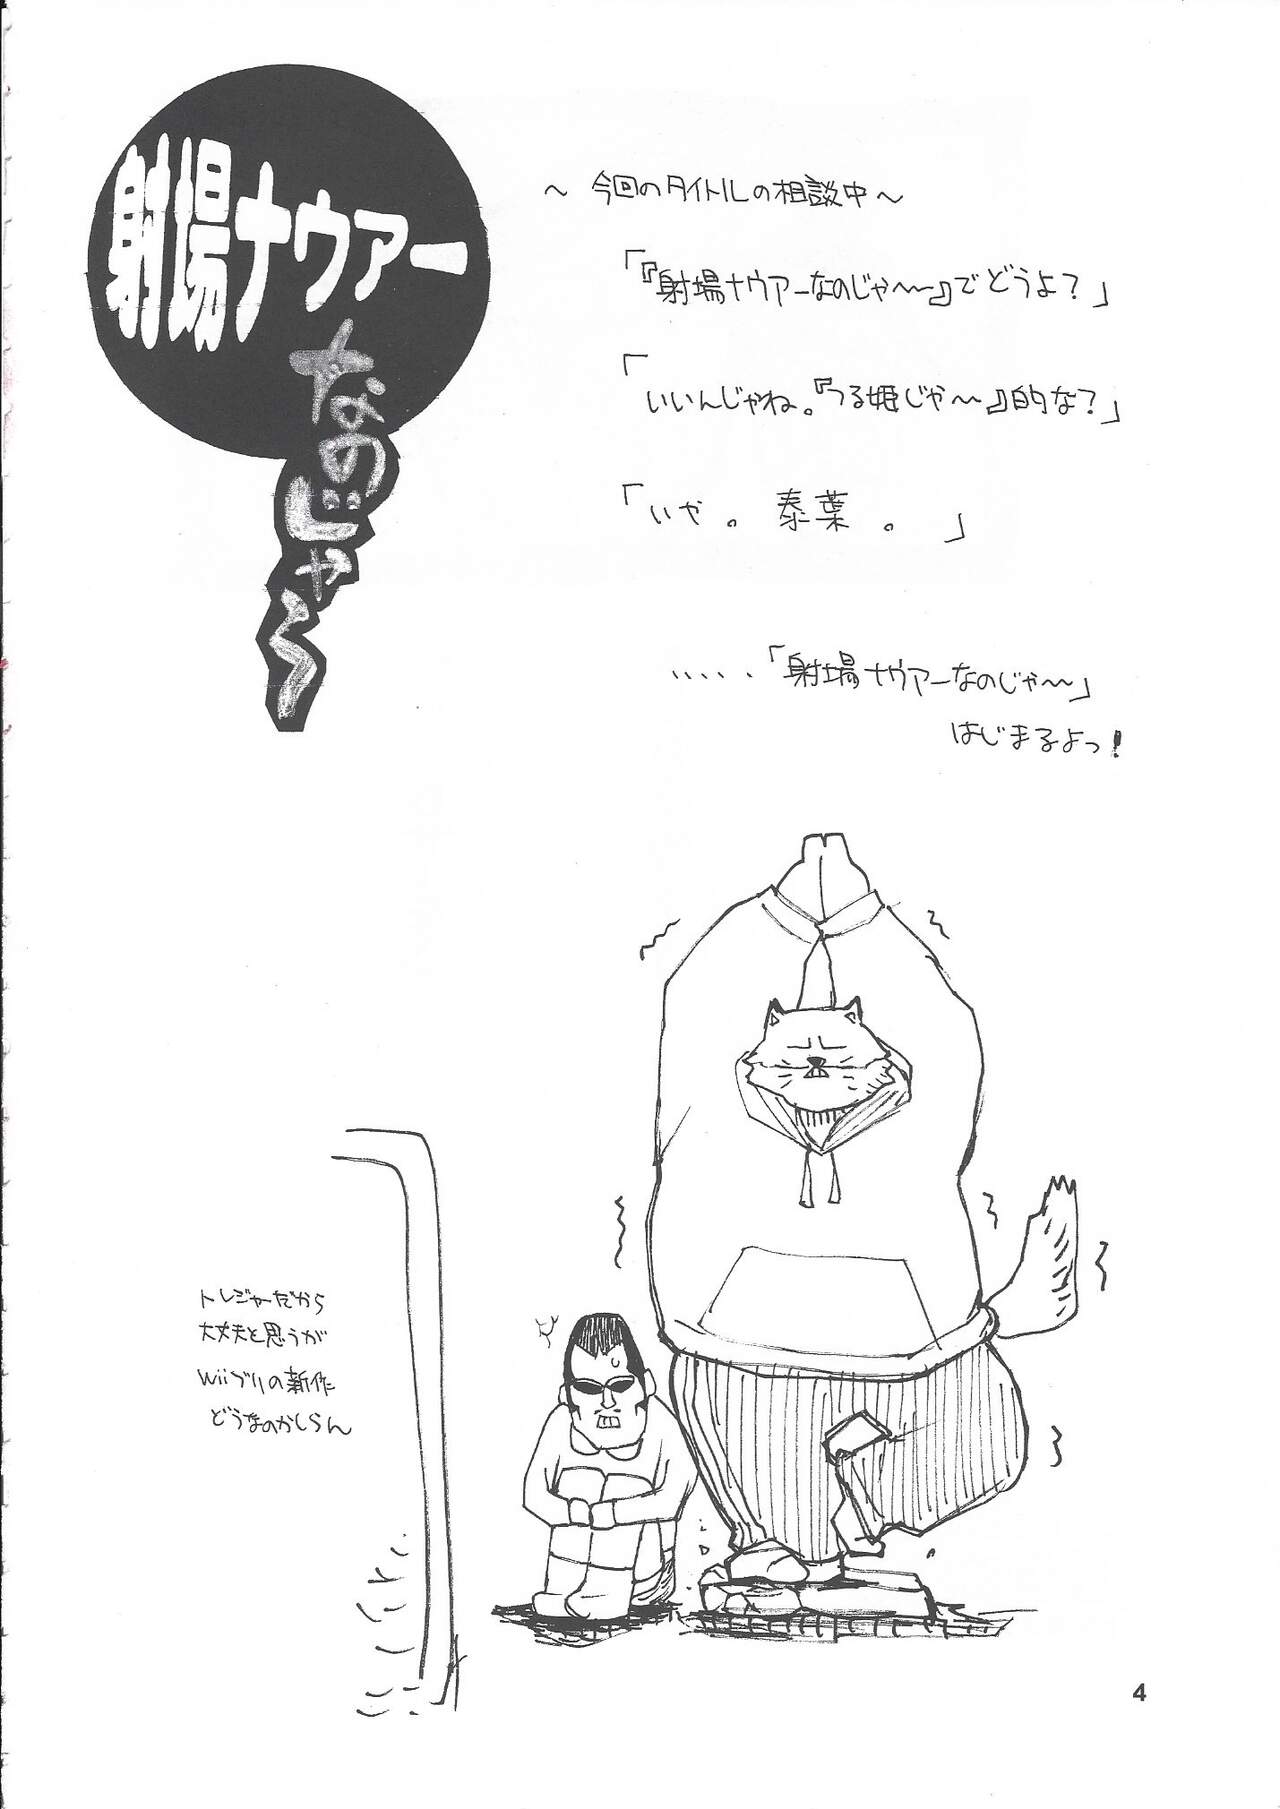 射場ナウアー
なのじゃ〜
〜 今回のタイトルの相談中〜
「『射場ナウアーなのじゃ〜〜』でどうよ？」
「いいんじゃね。『つる姫じゃ〜〜』的な？」
「いや。泰葉。」
、、、、、「射場ナウアーなのじゃ〜〜」
はじまるよっ！
トレジャーだから
大丈夫と思うが
Wiiブリの新作
どうなのかしらん
4